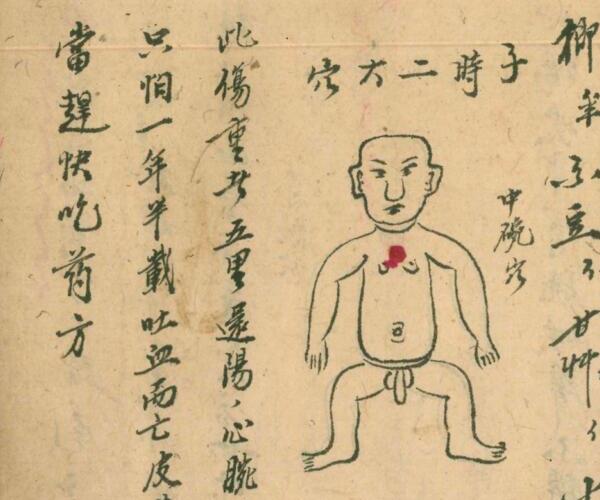 柳半 豆 甘艸
子時二大穴
中碗穴
此傷重者五里還陽心腕
只怕一年半載吐血而亡皮
當趕快吃葯方